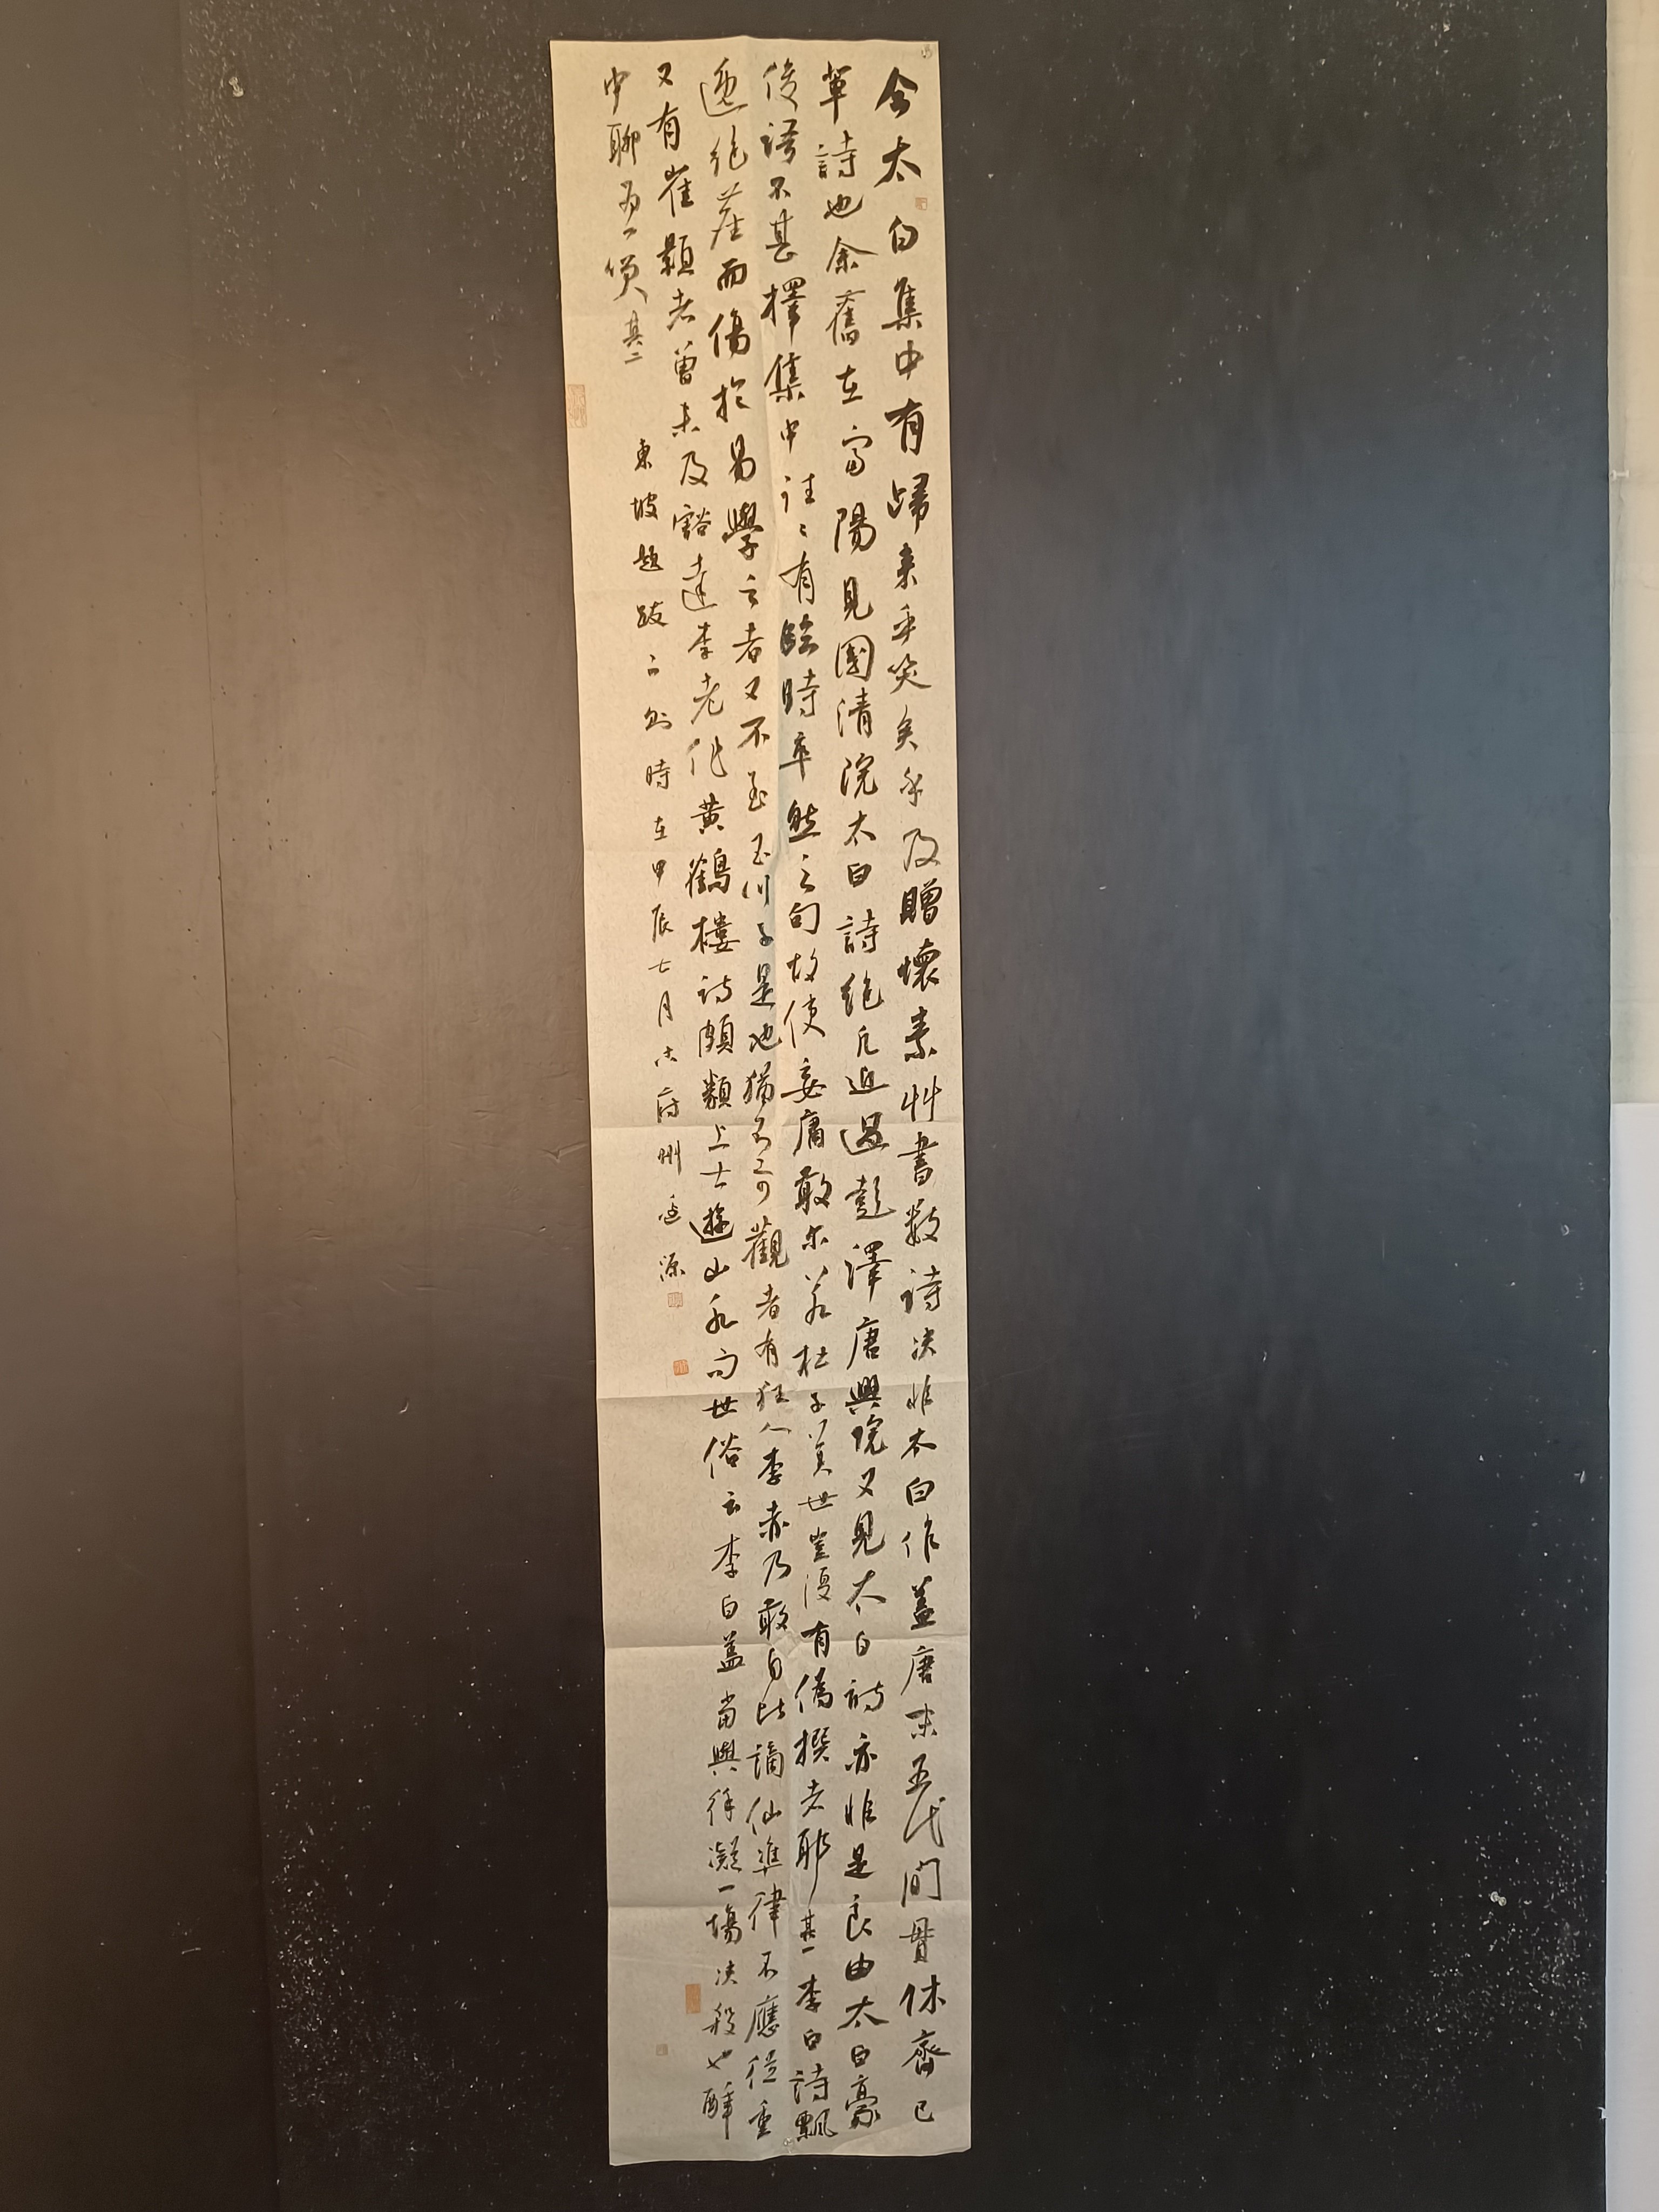 今太白集中有歸来乎笑矣乎及贈懷素艸書數诗决非太白作盖唐末五代間貫休齊己
輩詩也余舊在富陽見國清院太白詩絶凡近過彭澤唐興院又見太白诗亦非是良由太白豪
俊语不甚擇集中往々有臨時率然之句故使妄庸敢尔若杜子美世豈復有偽撰者耶其一李白詩飄
逸绝塵而傷於易學之者又不至玉川子是也猶有可觀者有狂人李赤乃敢自比謫仙準律不應從重
又有崔顥者曾未及豁達李老作黄鶴樓诗頗類上士遊山水而世俗云李白盖當與徐凝一場决殺也醉
中聊为一笑其二
東坡題跋二则時在甲辰七月